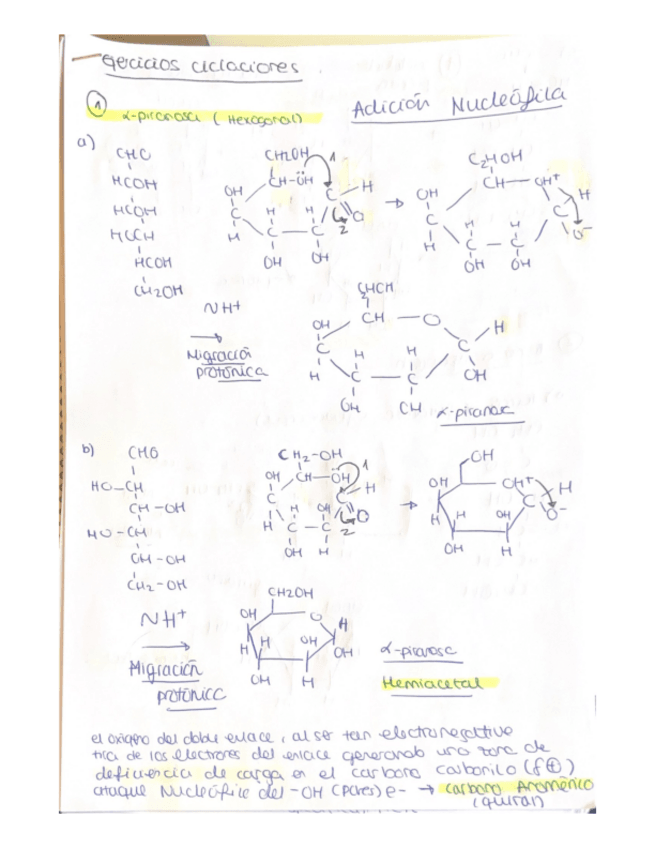 ejercicios ciclaciones
① α-piranosa (Hexagonal)
Adición Nucleófila
a)
CHO
HCOH
HCOH
HCOH
HCOH
CH2OH
CH2OH
CH-OH
1
OH
C
H
H
C
OH
H
C
OH
C
H
O
2
→
C2HOH
CH
OH+
OH
C
H
H
C
OH
H
C
OH
C
H
O-
NH+
→
Migración
protónica
CH
O
OH
C
H
H
C
OH
H
C
C
H
OH
α-piranosa
b)
CHO
HO-CH
CH-OH
HO-CH
CH-OH
CH2-OH
CH2-OH
CH
OH
1
OH
C
H
H
C
OH
OH
C
H
C
H
O
2
→
OH
OH
OH+
H
H
OH
OH
H
C
H
O-
NH+
→
Migración
protónica
CH2OH
OH
O
H
H
H
OH
OH
OH
H
α-piranosa
Hemiacetal
el oxígeno del doble enlace, al ser tan electronegativo
tira de los electrones del enlace generando una zona de
deficiencia de carga en el carbono carbonilo (δ⊕)
ataque Nucleófilo del -OH (pares) e- → carbono Anomérico
(quiral)